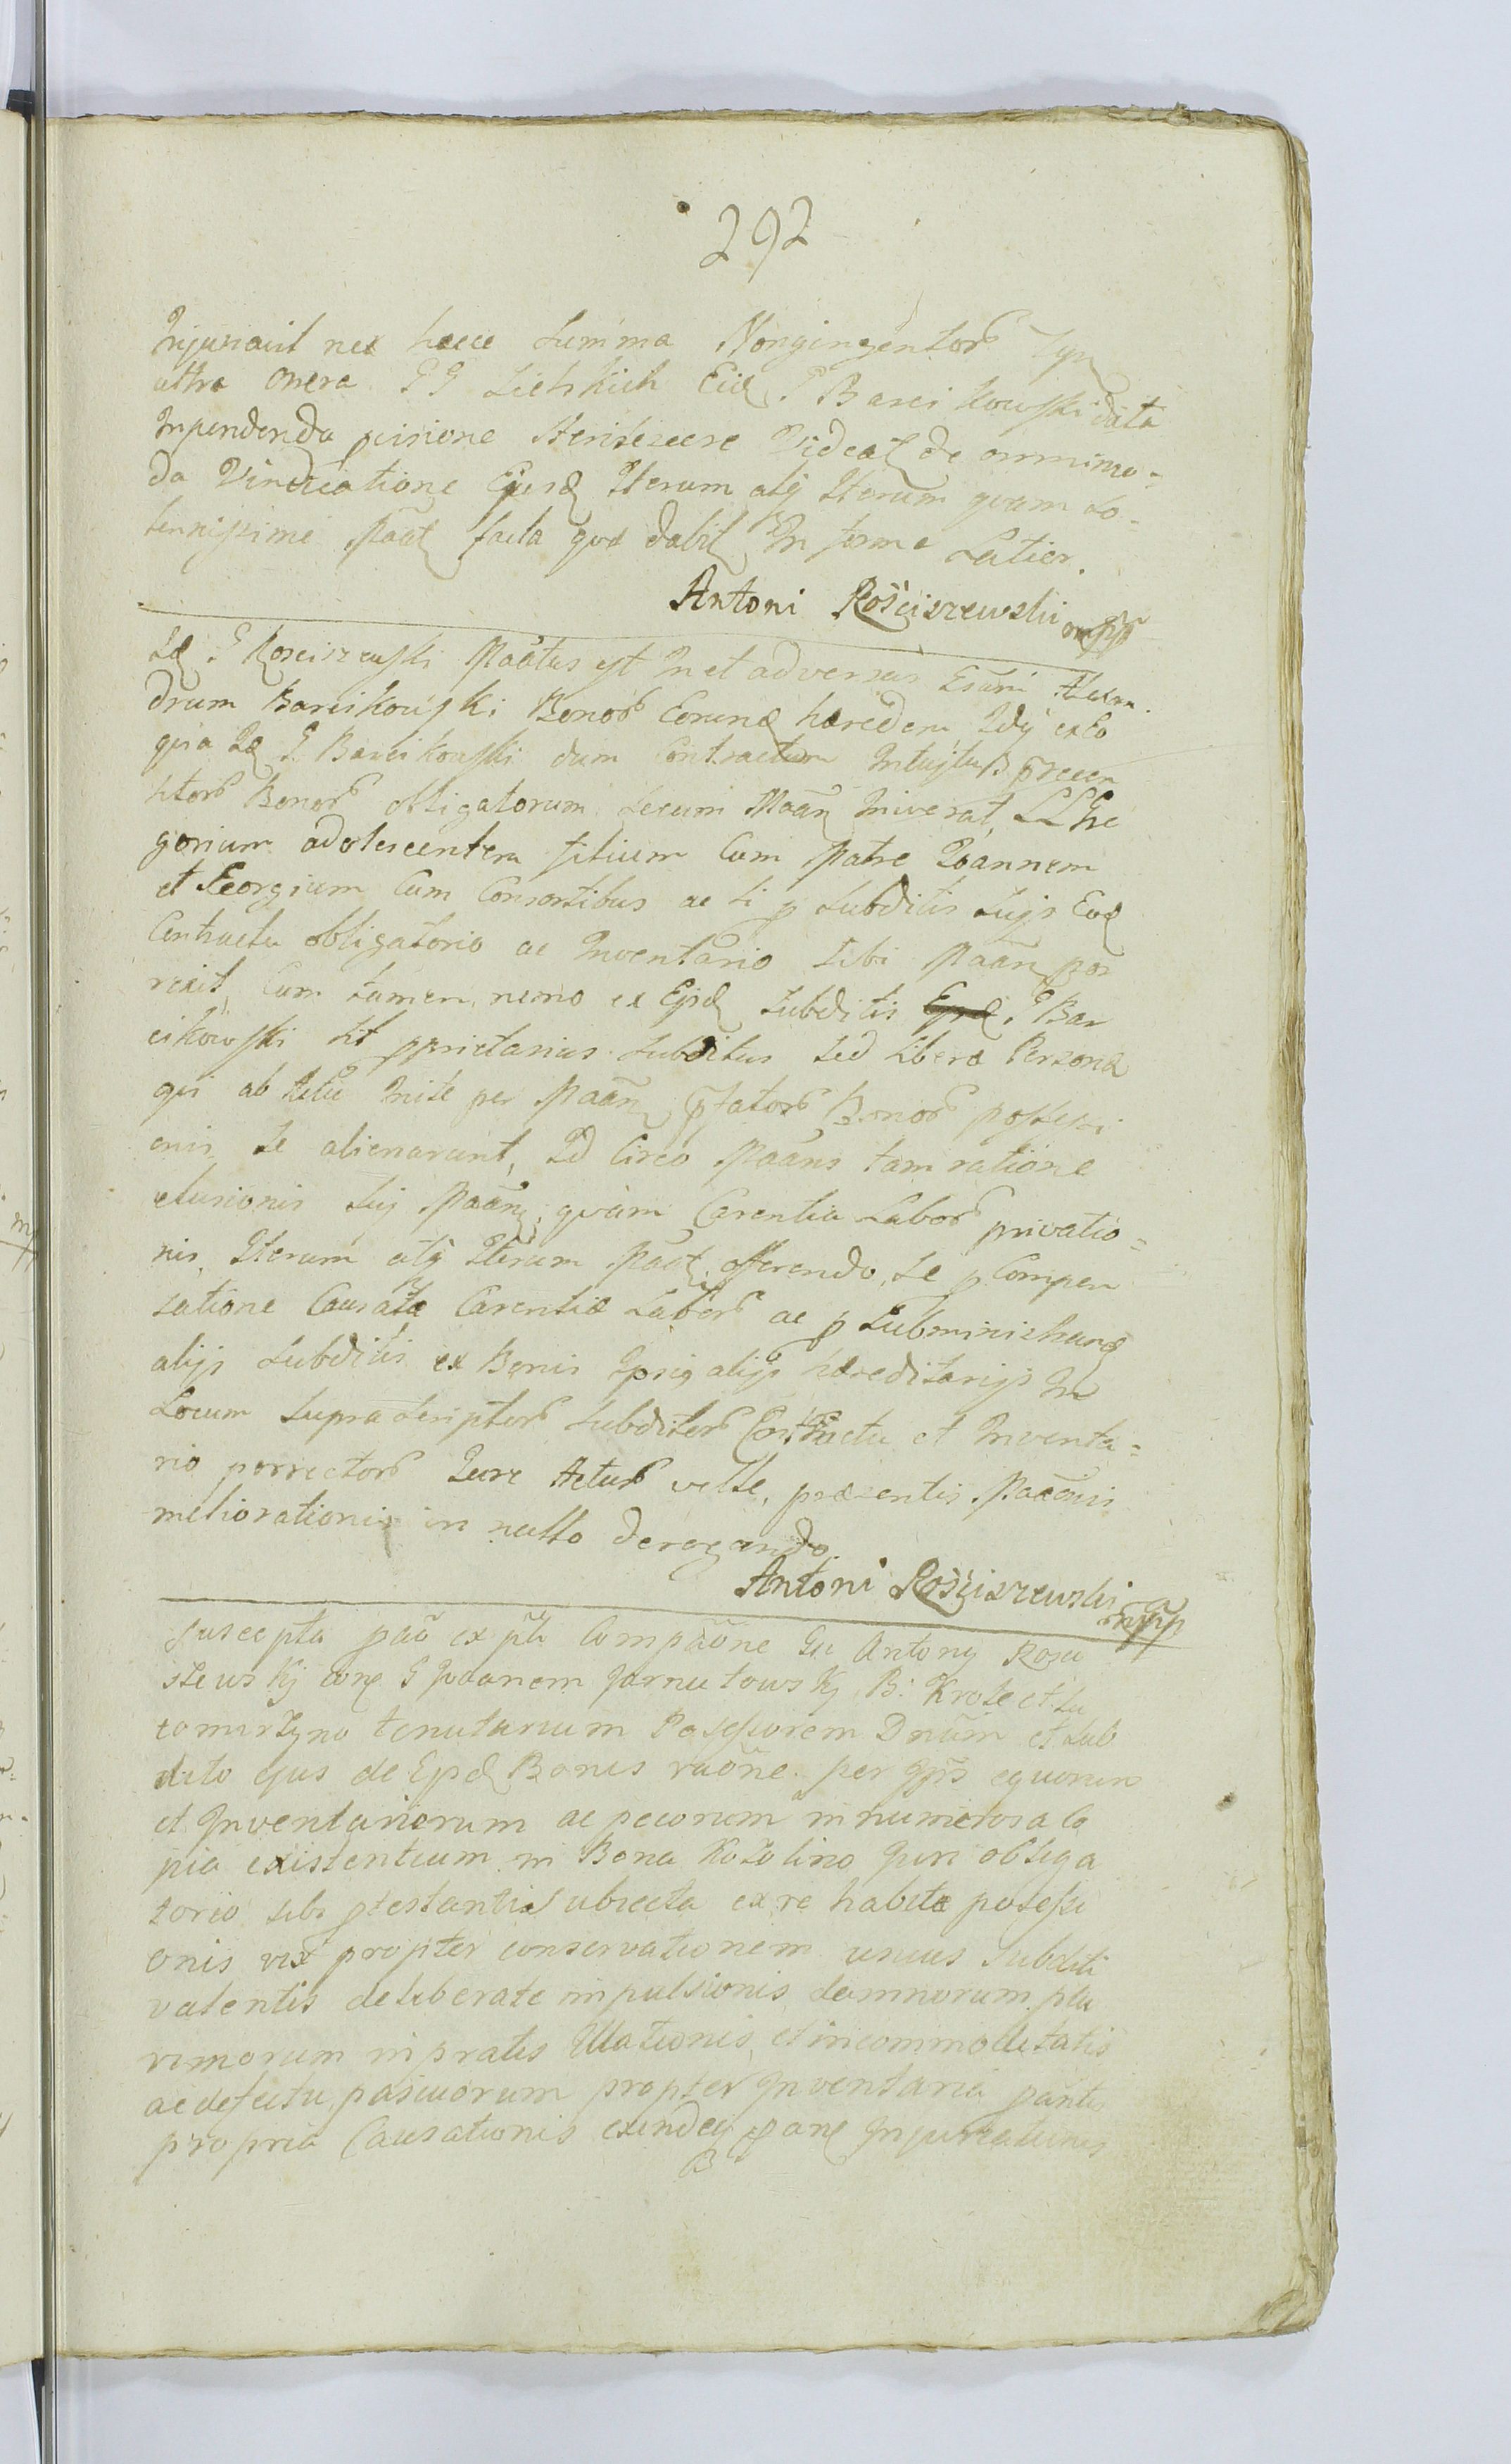 292
Injuriavit nec haece Summa Nongingentor
ultra onera G G Sielskich Eid. G Barcikowski data
Inpendenda
da Vindicatione Ejusd Iterum atq Iterum quam So-
lennissime Maãt facta quæ dabit In forma Latior.
Antoni Rościszewski mpp
Id G Rosciszewski Maãtus est In et adversus Alexan.
drum Barcikowski Bonor Eorund hæredem Idq ex Eo
quia Id G Barcikowski dum Contractum
Bonor obligatorum Secum Maãn Iniverat, LL Gre
gorium adolescentem filium Cum Patre Joannem
et Georgium Cum Consortibus ac Si p Subditis Suijs Eod
Contractu obligatorio ac Inventario Sibi Maãn por
rexit, Cum tamen nemo ex Eisd Subditis Ejusd G Bar
cikowski sit pprietarius Subditus Sed liberæ Personæ
qui ab Actu Inite per Maãn pfator Bonor possessi
onis Se alienarunt, Id Circo Maãns tam ratione
elusionis Sui Maãn quàm Carentiæ Labor privatio=
nis, Iterum atq Iterum Maãt, offerendo Se p Compen
satione Causatæ Carentiæ Labor ac p Subministrand
alijs Subditis ex Bonis Ipsiq alijs hæreditarijs In
Locum Suprascriptor Subditor Contractu et Inventa=
rio porrector Jure Actur velle, præsentis Maãonis
meliorationis in nullo derogando.
Antoni Rościszewski mpp
Suscepta pão ex pte Compãone Gu Antony Rosci
szewskj cone G Joannem Jarnutowskj B: Krole et Lu
tomirzyno tenutarium Possessorem Dnum et Sub
dito ejus de Eisd Bonis raõne per Ipsos equorum
et Inventariorum ac pecorum in numerosa Co
pia existentium in Bona Kozolino Juri obliga
torio sibi ptestanti Subiecta ex re habitæ possessi
onis vix propter conservationem unius Subditi
valentis deliberate impulsionis damnorum plu
rimorum in pratis Illationis et incommoditatis
ac defectu pascuorum propter Inventaria pantis
propria Causationis exindeq pane Injuriatinus